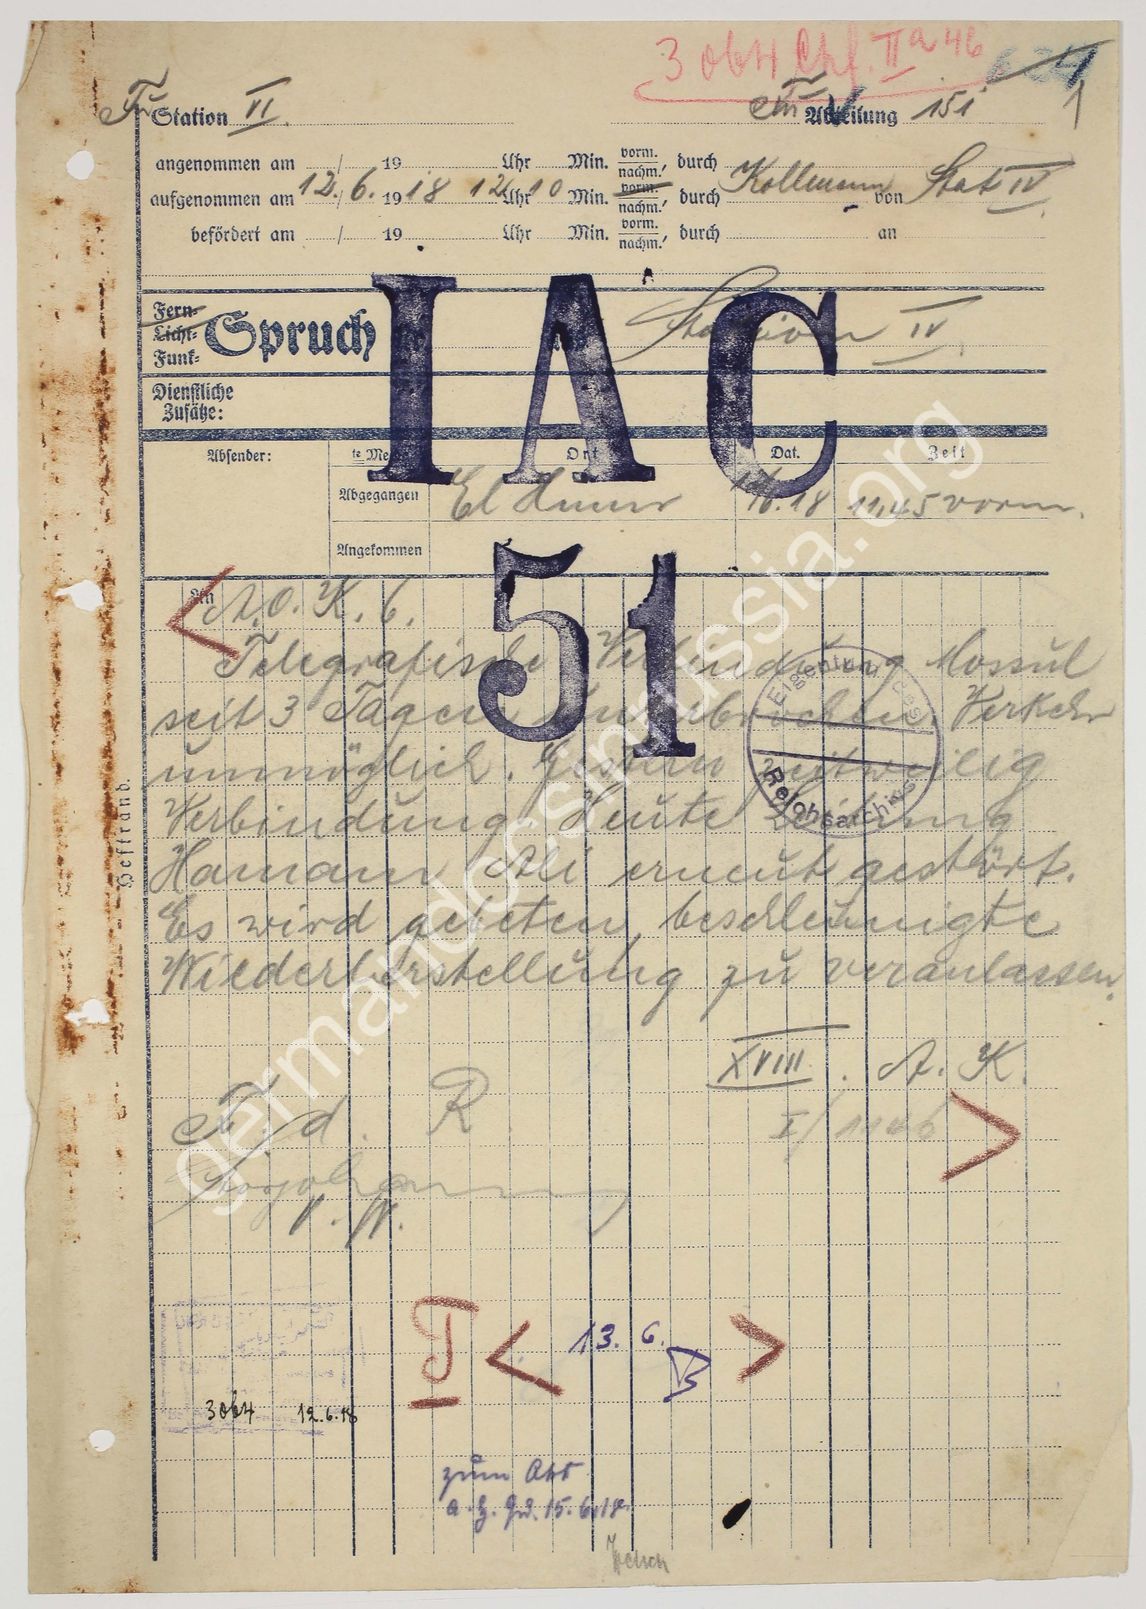 3064 Chf. IIa 46
Fu Station VI. Fu Abteilung 151 1
angenommen am / 19 Uhr Min. vorm./nachm., durch
aufgenommen am 12./6. 1918 12 Uhr 10 Min. vorm./nachm., durch Kollmann von Stat IV.
befördert am / 19 Uhr Min. vorm./nachm., durch an
Fern-
Licht-
Funk-
Spruch Station IV.
IAC
Dienstliche
Zusätze:
Absender: te Ort Dat. Zeit
Abgegangen 18 11,45 vorm.
Angekommen
51
An A.O.K. 6.
Telegrafische Verbindung Mossul
seit 3 Tagen unterbrochen. Verkehr
unmöglich. Gestern zeitweilig
Verbindung. Heute Leitung
Hamam Ali erneut gestört.
Es wird gebeten, beschleunigte
Wiederherstellung zu veranlassen.
XVIII. A. K.
I/
F. d. R
Eigentum des
Reichsarchivs
Heftrand.
13. 6.
3064 12.6.18
zum Akt
a. Z. 15.6.18.
germandocsinrussia.org